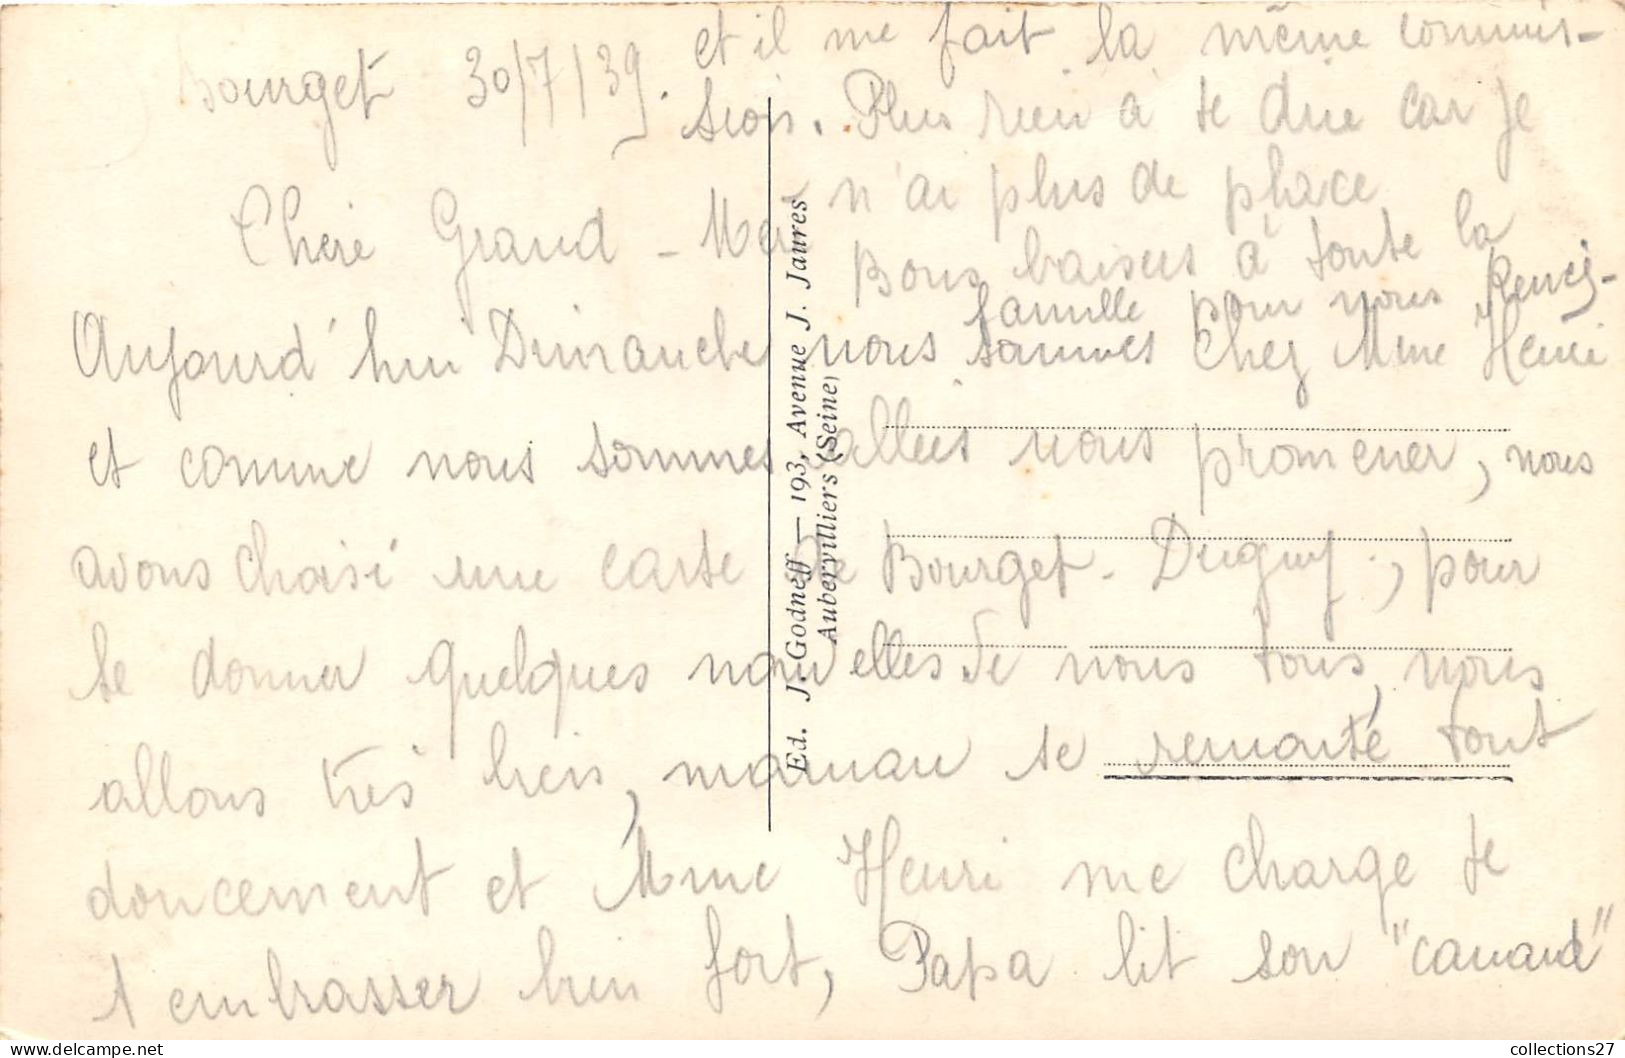 Bourget 30/7/39.
Chère Grand-Mère
Aujourd'hui Dimanche nous sommes chez Mme Henri
et comme nous sommes allées nous promener, nous
avons choisi une carte de Bourget-Dugny, pour
te donner quelques nouvelles de nous tous, nous
allons très bien, maman se remonte tout
doucement et Mme Henri me charge de
t embrasser bien fort, Papa lit son "canard"
et il me fait la même commis-
sion. Plus rien à te dire car je
n'ai plus de place
Bons baisers à toute la
famille pour nous
Ed. J. Godneff — 193, Avenue J. Jaurès
Aubervilliers (Seine)
collections27